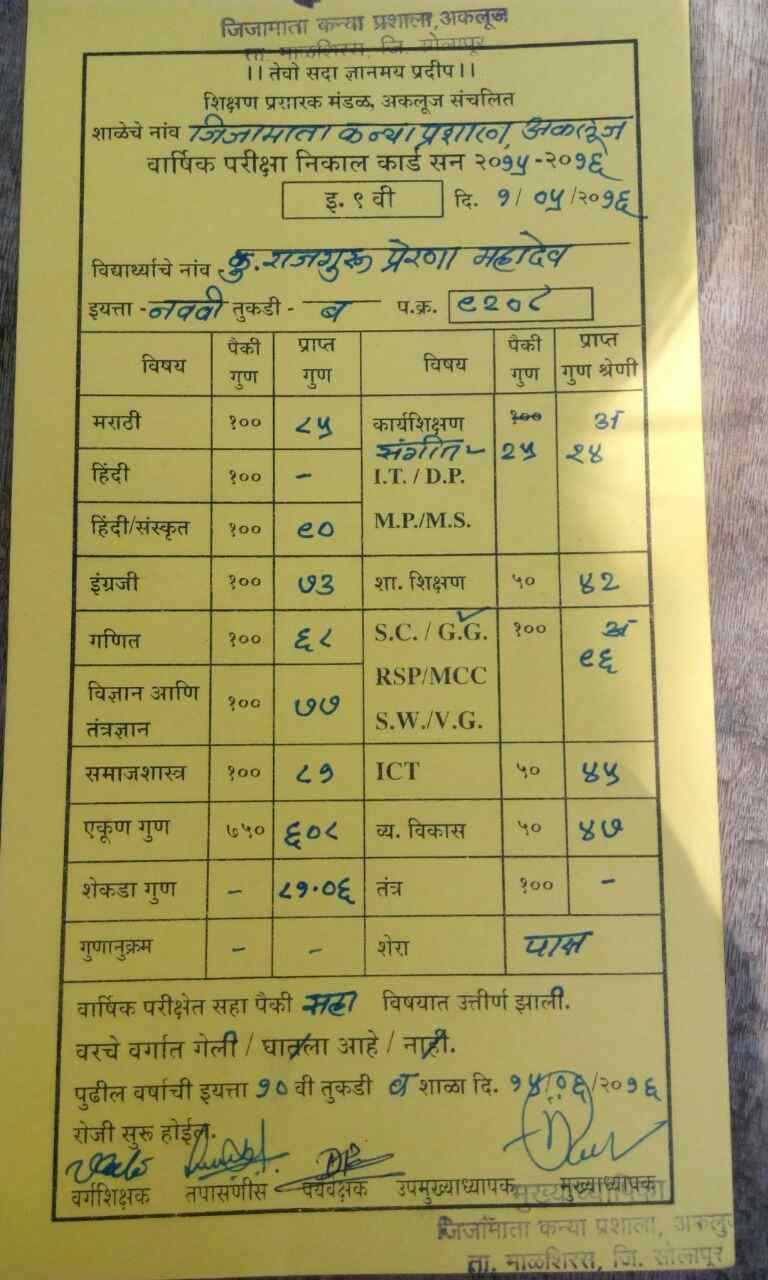 जिजामाता कन्या प्रशाला, अकलूज
ता. माळशिरस, जि. सोलापूर
।। तेवो सदा ज्ञानमय प्रदीप ।।
शिक्षण प्रसारक मंडळ, अकलूज संचलित
शाळेचे नांव जिजामाता कन्या प्रशाला, अकलूज
वार्षिक परीक्षा निकाल कार्ड सन २०१५-२०१६
इ. ९ वी दि. १/ ०५/२०१६
विद्यार्थ्याचे नांव कु. राजगुरू प्रेरणा महादेव
इयत्ता - नववी तुकडी - ब प.क्र. ९२०८
विषय पैकी गुण प्राप्त गुण विषय पैकी गुण प्राप्त गुण श्रेणी
मराठी १०० ८५ कार्यशिक्षण १०० अ
संगीत - २५ २४
हिंदी १०० - I.T. / D.P.
हिंदी/संस्कृत १०० ९० M.P./M.S.
इंग्रजी १०० ७३ शा. शिक्षण ५० ४२
गणित १०० ६८ S.C. / G.G. १०० अ
९६
विज्ञान आणि तंत्रज्ञान १०० ७७ RSP/MCC
S.W./V.G.
समाजशास्त्र १०० ८१ ICT ५० ४५
एकूण गुण ७५० ६०८ व्य. विकास ५० ४७
शेकडा गुण - ८१.०६ तंत्र १०० -
गुणानुक्रम - - शेरा पास
वार्षिक परीक्षेत सहा पैकी सहा विषयात उत्तीर्ण झाली.
वरचे वर्गात गेली / घातला आहे / नाही.
पुढील वर्षाची इयत्ता १० वी तुकडी ब शाळा दि. १५/०६/२०१६
रोजी सुरू होईल.
वर्गशिक्षक तपासणीस पर्यवेक्षक उपमुख्याध्यापक मुख्याध्यापक
मुख्याध्यापिका
जिजामाता कन्या प्रशाला, अकलुज
ता. माळशिरस, जि. सोलापूर